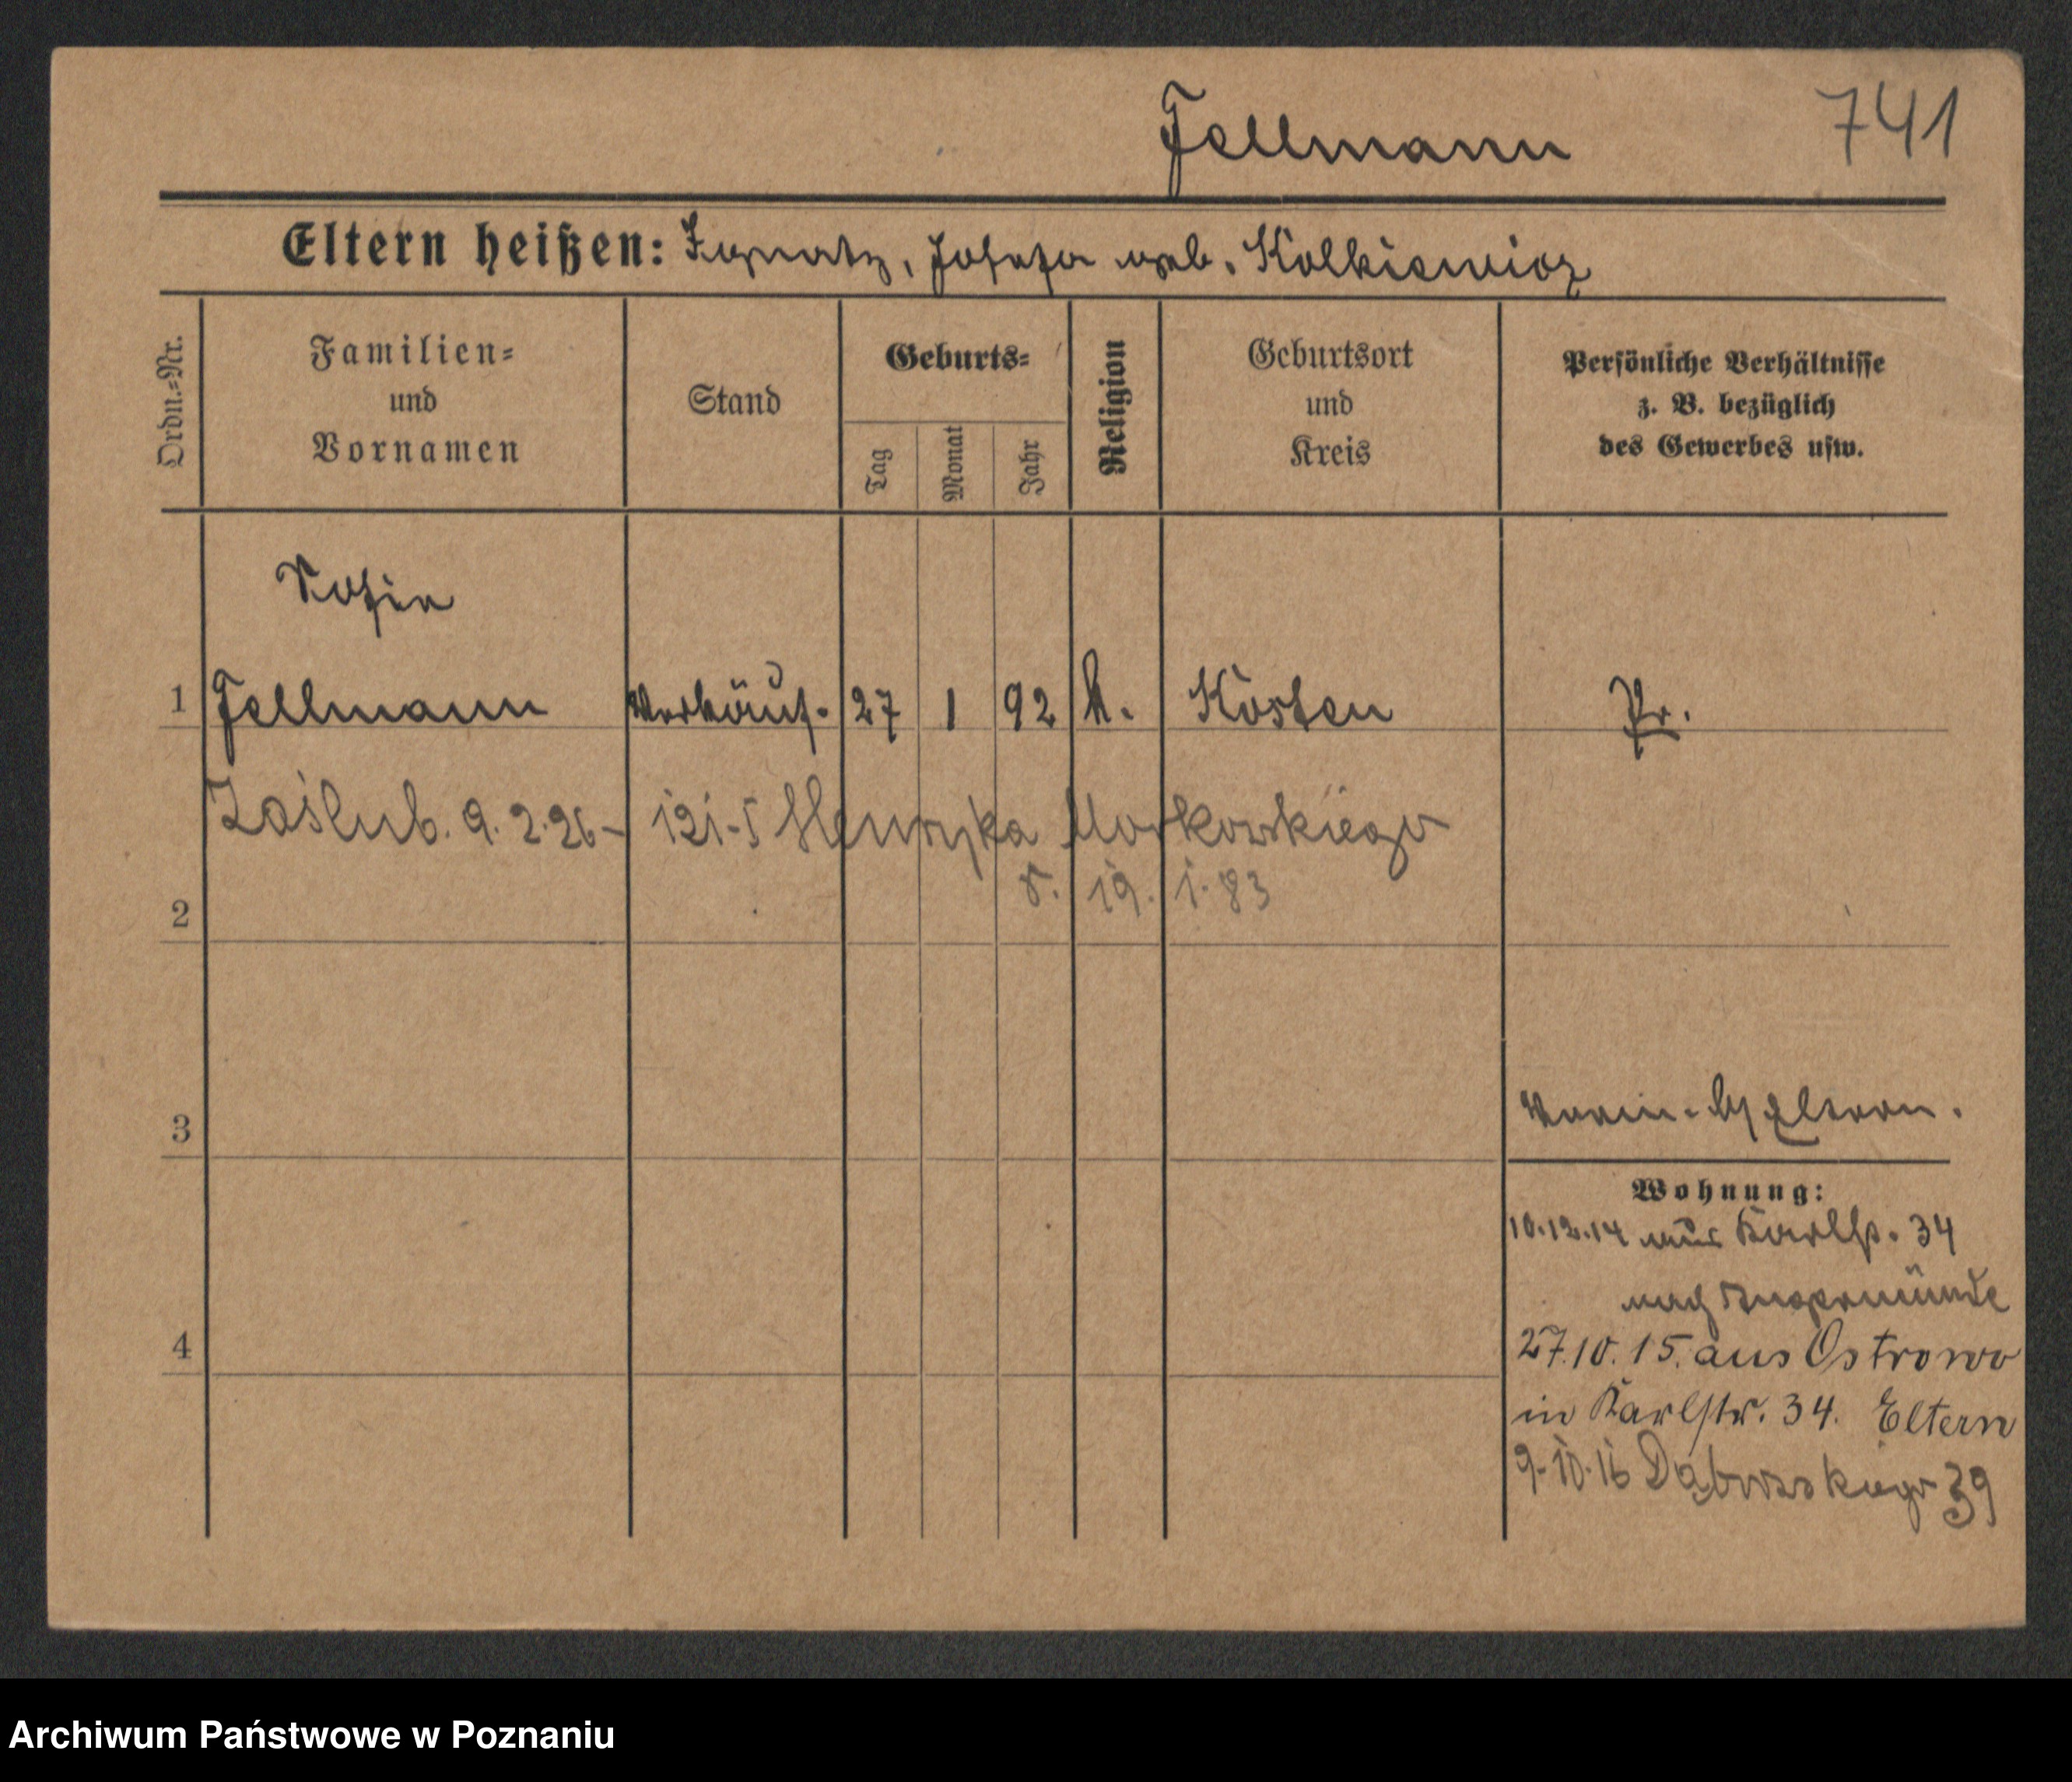 Fellmann
741
Eltern heißen: Ignatz, Josefa geb. Kolkiewicz
Ordn.=Nr.
Familien=
und
Vornamen
Stand
Geburts=
Tag
Monat
Jahr
Religion
Geburtsort
und
Kreis
Persönliche Verhältnisse
z. B. bezüglich
des Gewerbes usw.
Sofia
1 Fellmann Verkäuf. 27 1 92 k. Kosten Pr.
Zaślub. 9.2.26 - 121-5 Henryka
19. 1. 83
2
3
Eltern.
Wohnung:
10.12.14 aus Karlstr. 34
nach Angermünde
4
27.10.15. aus Ostrowo
in Karlstr. 34. Eltern
9.10.16 Dąbrowskiego 39
Archiwum Państwowe w Poznaniu